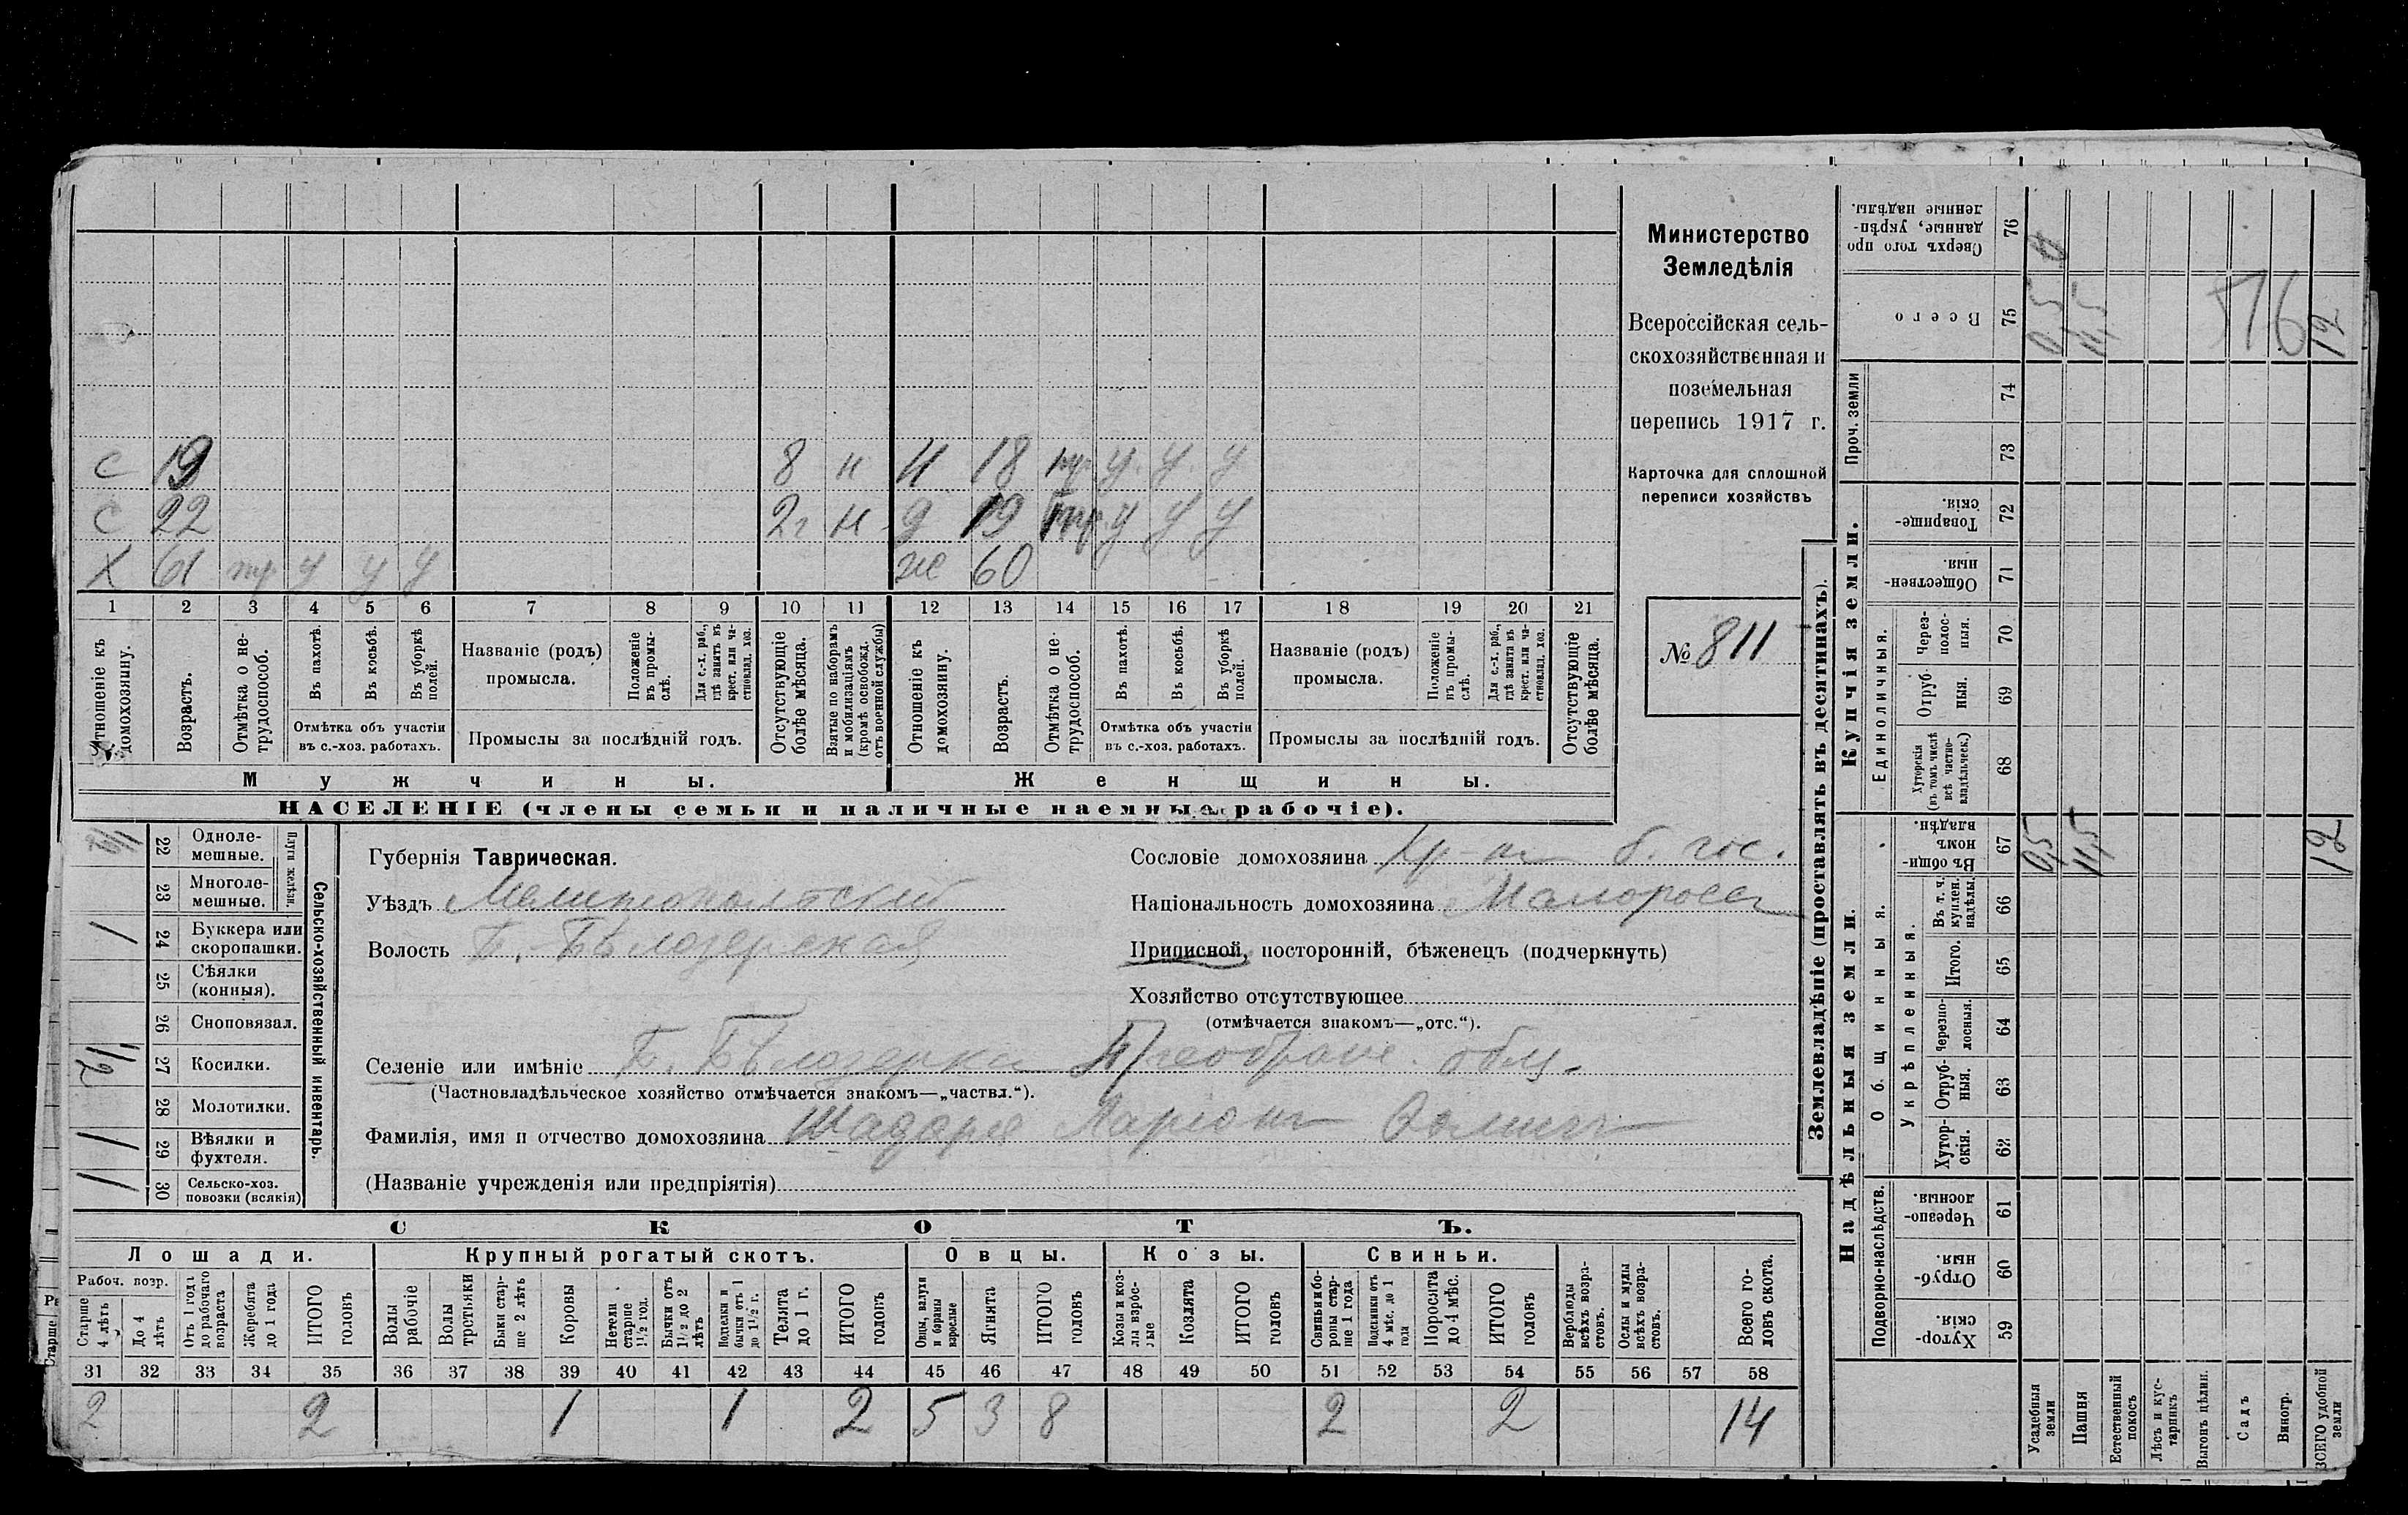 Министерство
Земледѣлія
Всероссійская сель-
скохозяйственная и
поземельная
перепись 1917 г.
Карточка для сплошной
переписи хозяйствъ
№ 811
с 19 8 н Н 18 пр. у. у. у
с 22 2г н д 19 у у у
Х 61 пр у у у же 60
1 2 3 4 5 6 7 8 9 10 11 12 13 14 15 16 17 18 19 20 21
Отношеніе къ домохозяину.
Возрастъ.
Отмѣтка о не-трудоспособ.
Въ пахотѣ.
Въ косьбѣ.
Въ уборкѣ полей.
Отмѣтка объ участіи
въ с.-хоз. работахъ.
Названіе (родъ)
промысла.
Положеніе въ промы-слѣ.
Для с.-х. раб., гдѣ занятъ въ крест. или ча-стновлад. хоз.
Промыслы за послѣдній годъ.
Отсутствующіе болѣе мѣсяца.
Взятые по наборамъ и мобилизаціямъ (кромѣ освобожд. отъ военной службы)
Отношеніе къ домохозяину.
Возрастъ.
Отмѣтка о не-трудоспособ.
Въ пахотѣ.
Въ косьбѣ.
Въ уборкѣ полей.
Отмѣтка объ участіи
въ с.-хоз. работахъ.
Названіе (родъ)
промысла.
Положеніе въ промы-слѣ.
Для с.-х. раб., гдѣ занята въ крест. или ча-стновлад. хоз.
Промыслы за послѣдній годъ.
Отсутствующіе болѣе мѣсяца.
Мужчины. Женщины.
НАСЕЛЕНІЕ (члены семьи и наличные наемные рабочіе).
Сельско-хозяйственный инвентарь.
Плуги желѣзн.
22 Одноле-мешные.
23 Многоле-мешные.
24 Буккера или скоропашки. 1
25 Сѣялки (конныя).
26 Сноповязал.
27 Косилки. 1/2
28 Молотилки.
29 Вѣялки и фухтеля. 1
30 Сельско-хоз. повозки (всякія) 1
Губернія Таврическая.
Уѣздъ Мелитопольский
Волость Б.-Бѣлозерская
Сословіе домохозяина кр-н б. гос.
Національность домохозяина Малоросс
Приписной, посторонній, бѣженецъ (подчеркнуть)
Хозяйство отсутствующее
(отмѣчается знакомъ—„отс.“).
Селеніе или имѣніе Б. Бѣлозерка Преображ. общ.
(Частновладѣльческое хозяйство отмѣчается знакомъ—„частвл.“).
Фамилія, имя и отчество домохозяина Шадура Ларіонъ
(Названіе учрежденія или предпріятія)
СКОТЪ.
Лошади. Крупный рогатый скотъ. Овцы. Козы. Свиньи.
Рабоч. возр.
Старше 4 лѣтъ
До 4 лѣтъ
Отъ 1 года до рабочаго возраста
Жеребята до 1 года
ИТОГО головъ
Волы рабочіе
Волы третьяки
Быки стар-ше 2 лѣтъ
Коровы
Нетели старше 1½ год.
Бычки отъ 1½ до 2 лѣтъ
Подтелки и бычки отъ 1 до 1½ г.
Телята до 1 г.
ИТОГО головъ
Овцы, валухи и бараны взрослые
Ягнята
ИТОГО головъ
Козы и коз-лы взрос-лые
Козлята
ИТОГО головъ
Свиньи и бо-ровы стар-ше 1 года
Подсвинки отъ 4 мѣс. до 1 года
Поросята до 4 мѣс.
ИТОГО головъ
Верблюды всѣхъ возра-стовъ.
Ослы и мулы всѣхъ возра-стовъ.
Всего го-ловъ скота.
31 32 33 34 35 36 37 38 39 40 41 42 43 44 45 46 47 48 49 50 51 52 53 54 55 56 57 58
2 2 1 1 2 5 3 8 2 2 14
Землевладѣніе (проставлять въ десятинахъ).
Надѣльныя земли. Купчія земли. Проч. земли
Подворно-наслѣдств. Общинныя. Укрѣпленныя. Единоличныя.
76 Сверхъ того про-данные, укрѣп-ленные надѣлы.
75 Всего
74
73
72 Товарище-скія.
71 Обществен-ныя.
70 Через-полос-ныя.
69 Отруб-ныя.
68 Хуторскія (въ томъ числѣ всѣ частно-владѣльческ.)
67 Въ общин-номъ владѣн.
66 Въ т. ч. куплен. надѣлы.
65 Итого.
64 Черезпо-лосныя.
63 Отруб-ныя.
62 Хутор-скія.
61 Черезпо-лосныя.
60 Отруб-ныя.
59 Хутор-скія.
Усадебныя земли 0,5 0,5
Пашня 11,5 11,5
Естественный покосъ
Лѣсъ и кус-тарникъ
Выгонъ цѣлин.
Садъ
Виногр.
ВСЕГО удобной земли 12 12
516